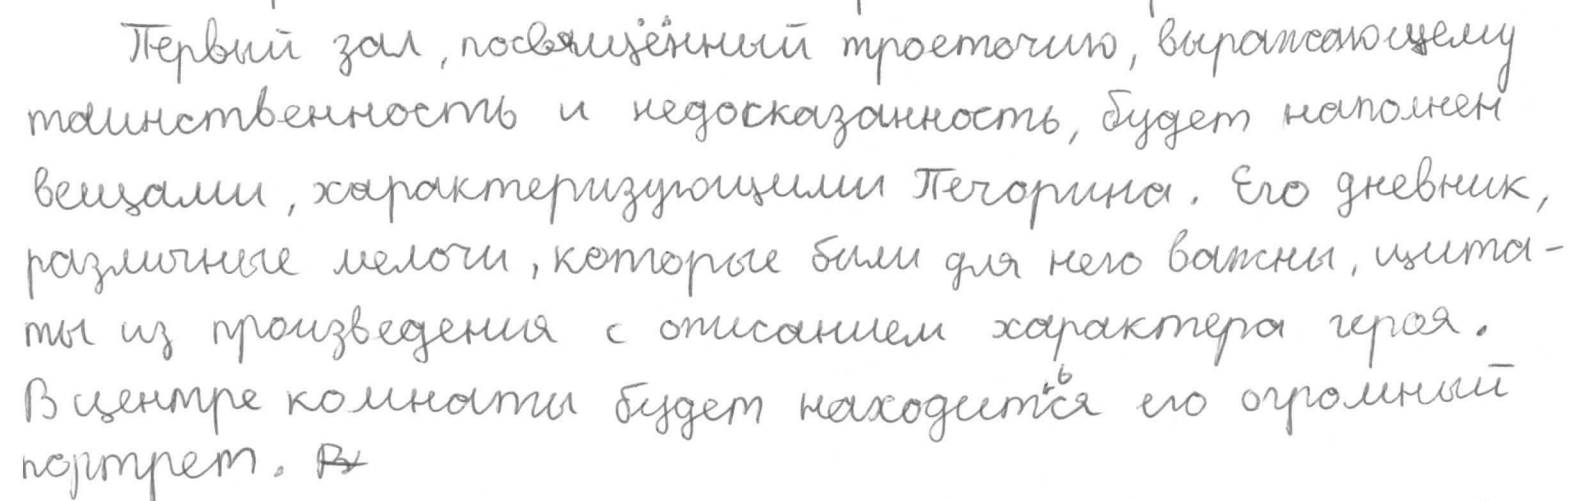 Первый зал, посвящённый троеточию, выражающему
таинственность и недосказанность, будет наполнен
вещами, характеризующими Печорина. Его дневник,
различные мелочи, которые были для него важны, цита-
ты из произведения с описанием характера героя.
В центре комнаты будет находиться его огромный
портрет.